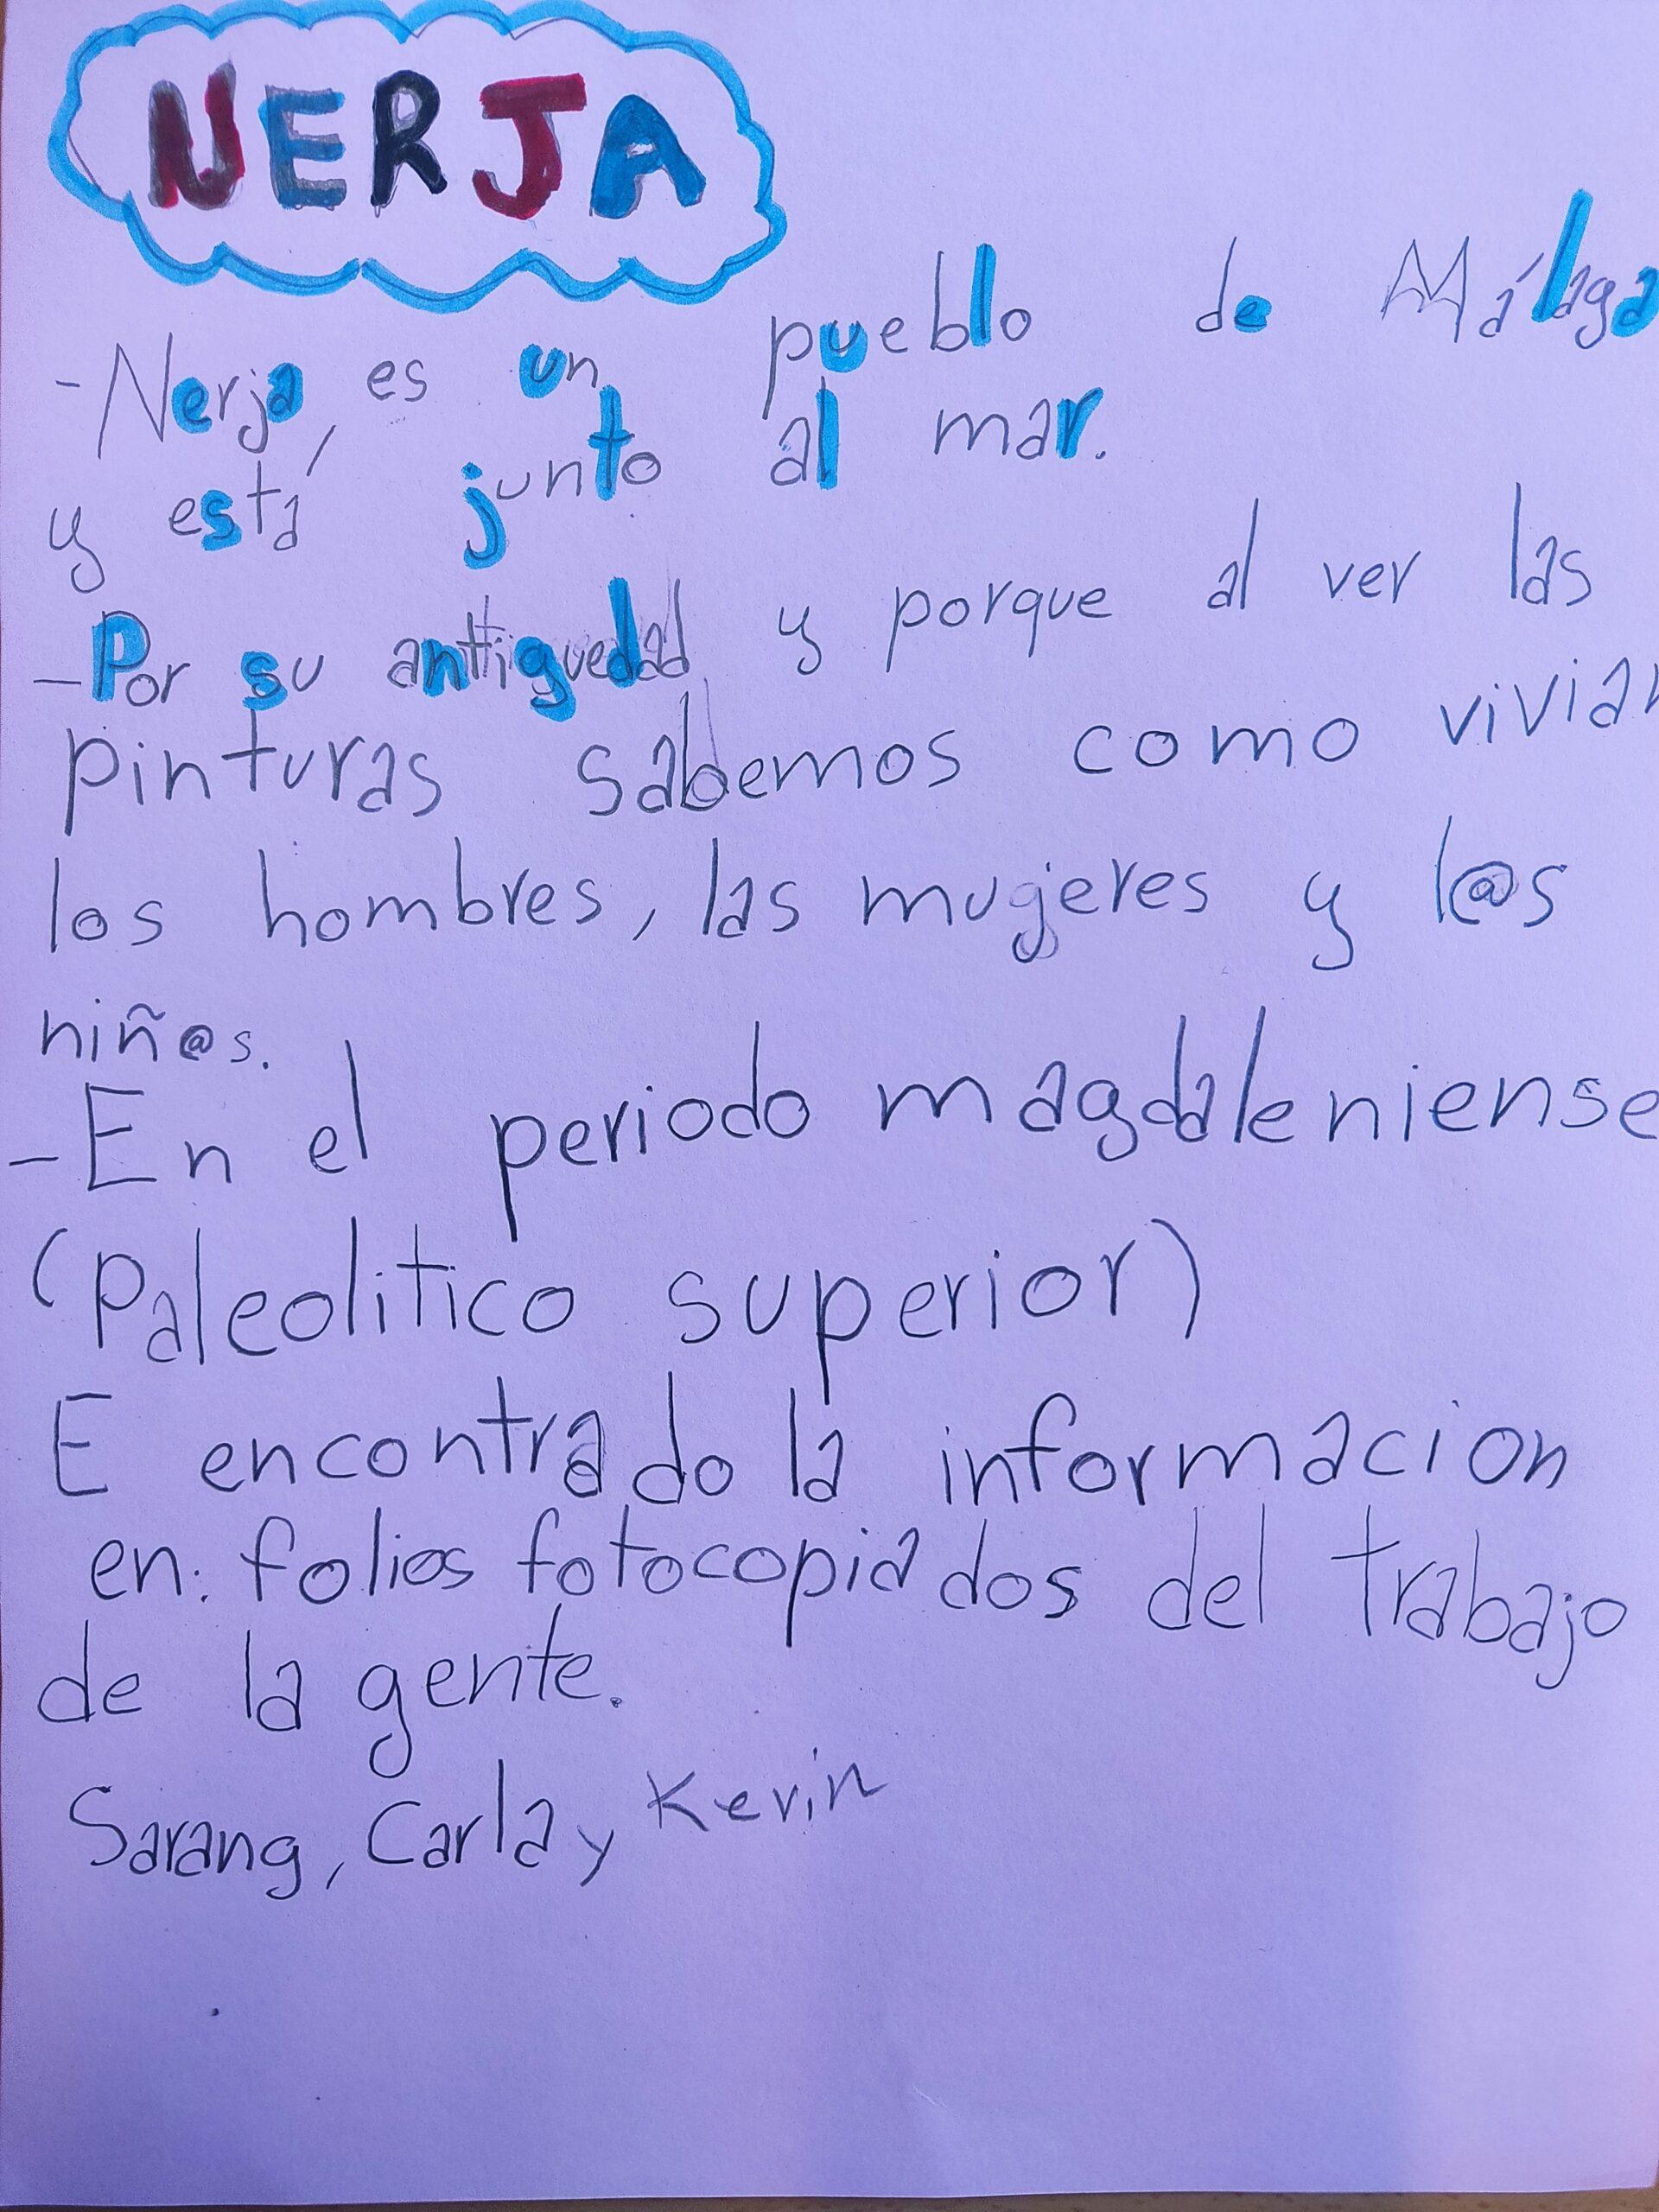 NERJA
-Nerja, es un pueblo de Málaga
y está junto al mar.
-Por su antiguedad y porque al ver las
pinturas sabemos como vivian
los hombres, las mujeres y l@s
niñ@s.
-En el periodo magdaleniense
(Paleolitico superior)
E encontrado la informacion
en: folios fotocopiados del trabajo
de la gente.
Sarang, Carla y Kevin